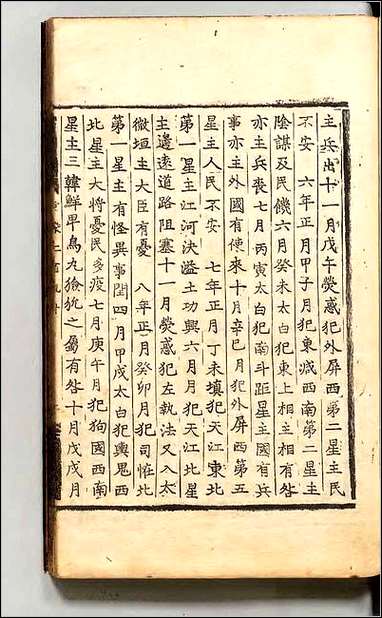 主兵出十一月戊午熒惑犯外屏西第二星主民
不安　六年正月甲子月犯東咸西南第二星主
陰謀及民饑六月癸未太白犯東上相主相有咎
亦主兵喪七月丙寅太白犯南斗距星主國有兵
事亦主外國有使來十月辛巳月犯外屏西第五
星主人民不安　七年正月丁未填犯天江東北
第一星主江河決溢土功興六月月犯天江北星
主邊遠道路阻塞十一月熒惑犯左執法又入太
微垣主大臣有憂　八年正月癸卯月犯司怪北
第一星主有怪異事閏四月甲戌太白犯輿鬼西
北星主大將憂民多疫七月庚午月犯狗國西南
星主三韓鮮卑烏九獫狁之屬有咎十月戊戌月